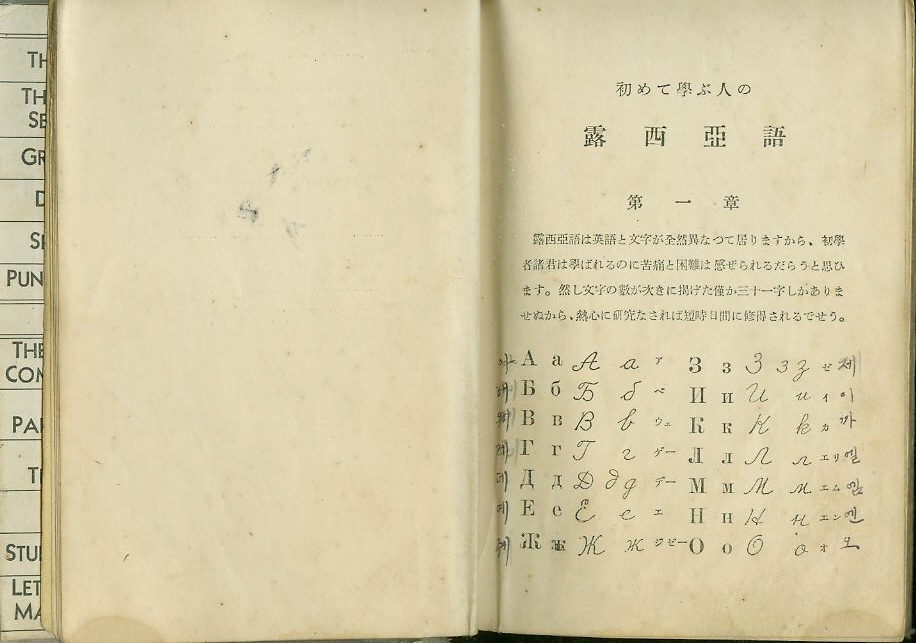 TH
TH
SE
GR
D
SE
PUN
THE
COM
PAR
T
STU
LET
MA
初めて學ぶ人の
露西亞語
第一章
露西亞語は英語と文字が全然異なつて居りますから、初學
者諸君は學ばれるのに苦痛と困難は感ぜられるだらうと思ひ
ます。然し文字の數が次きに揭げた僅か三十一字しかありま
せぬから、熱心に硏究なされば短時日間に修得されるでせう。
아 А а А а ア З з З з з ゼ 제
베 Б б Б б ベ И и И и イ 이
В в В в ウェ К к К к カ 까
Г г Г г ゲー Л л Л л エリ 엘
데 Д д Д д д デー М м М м エム 엠
예 Е е Е е エ Н н Н н エン 엔
Ж ж Ж ж ジゼー О о О о オ 오